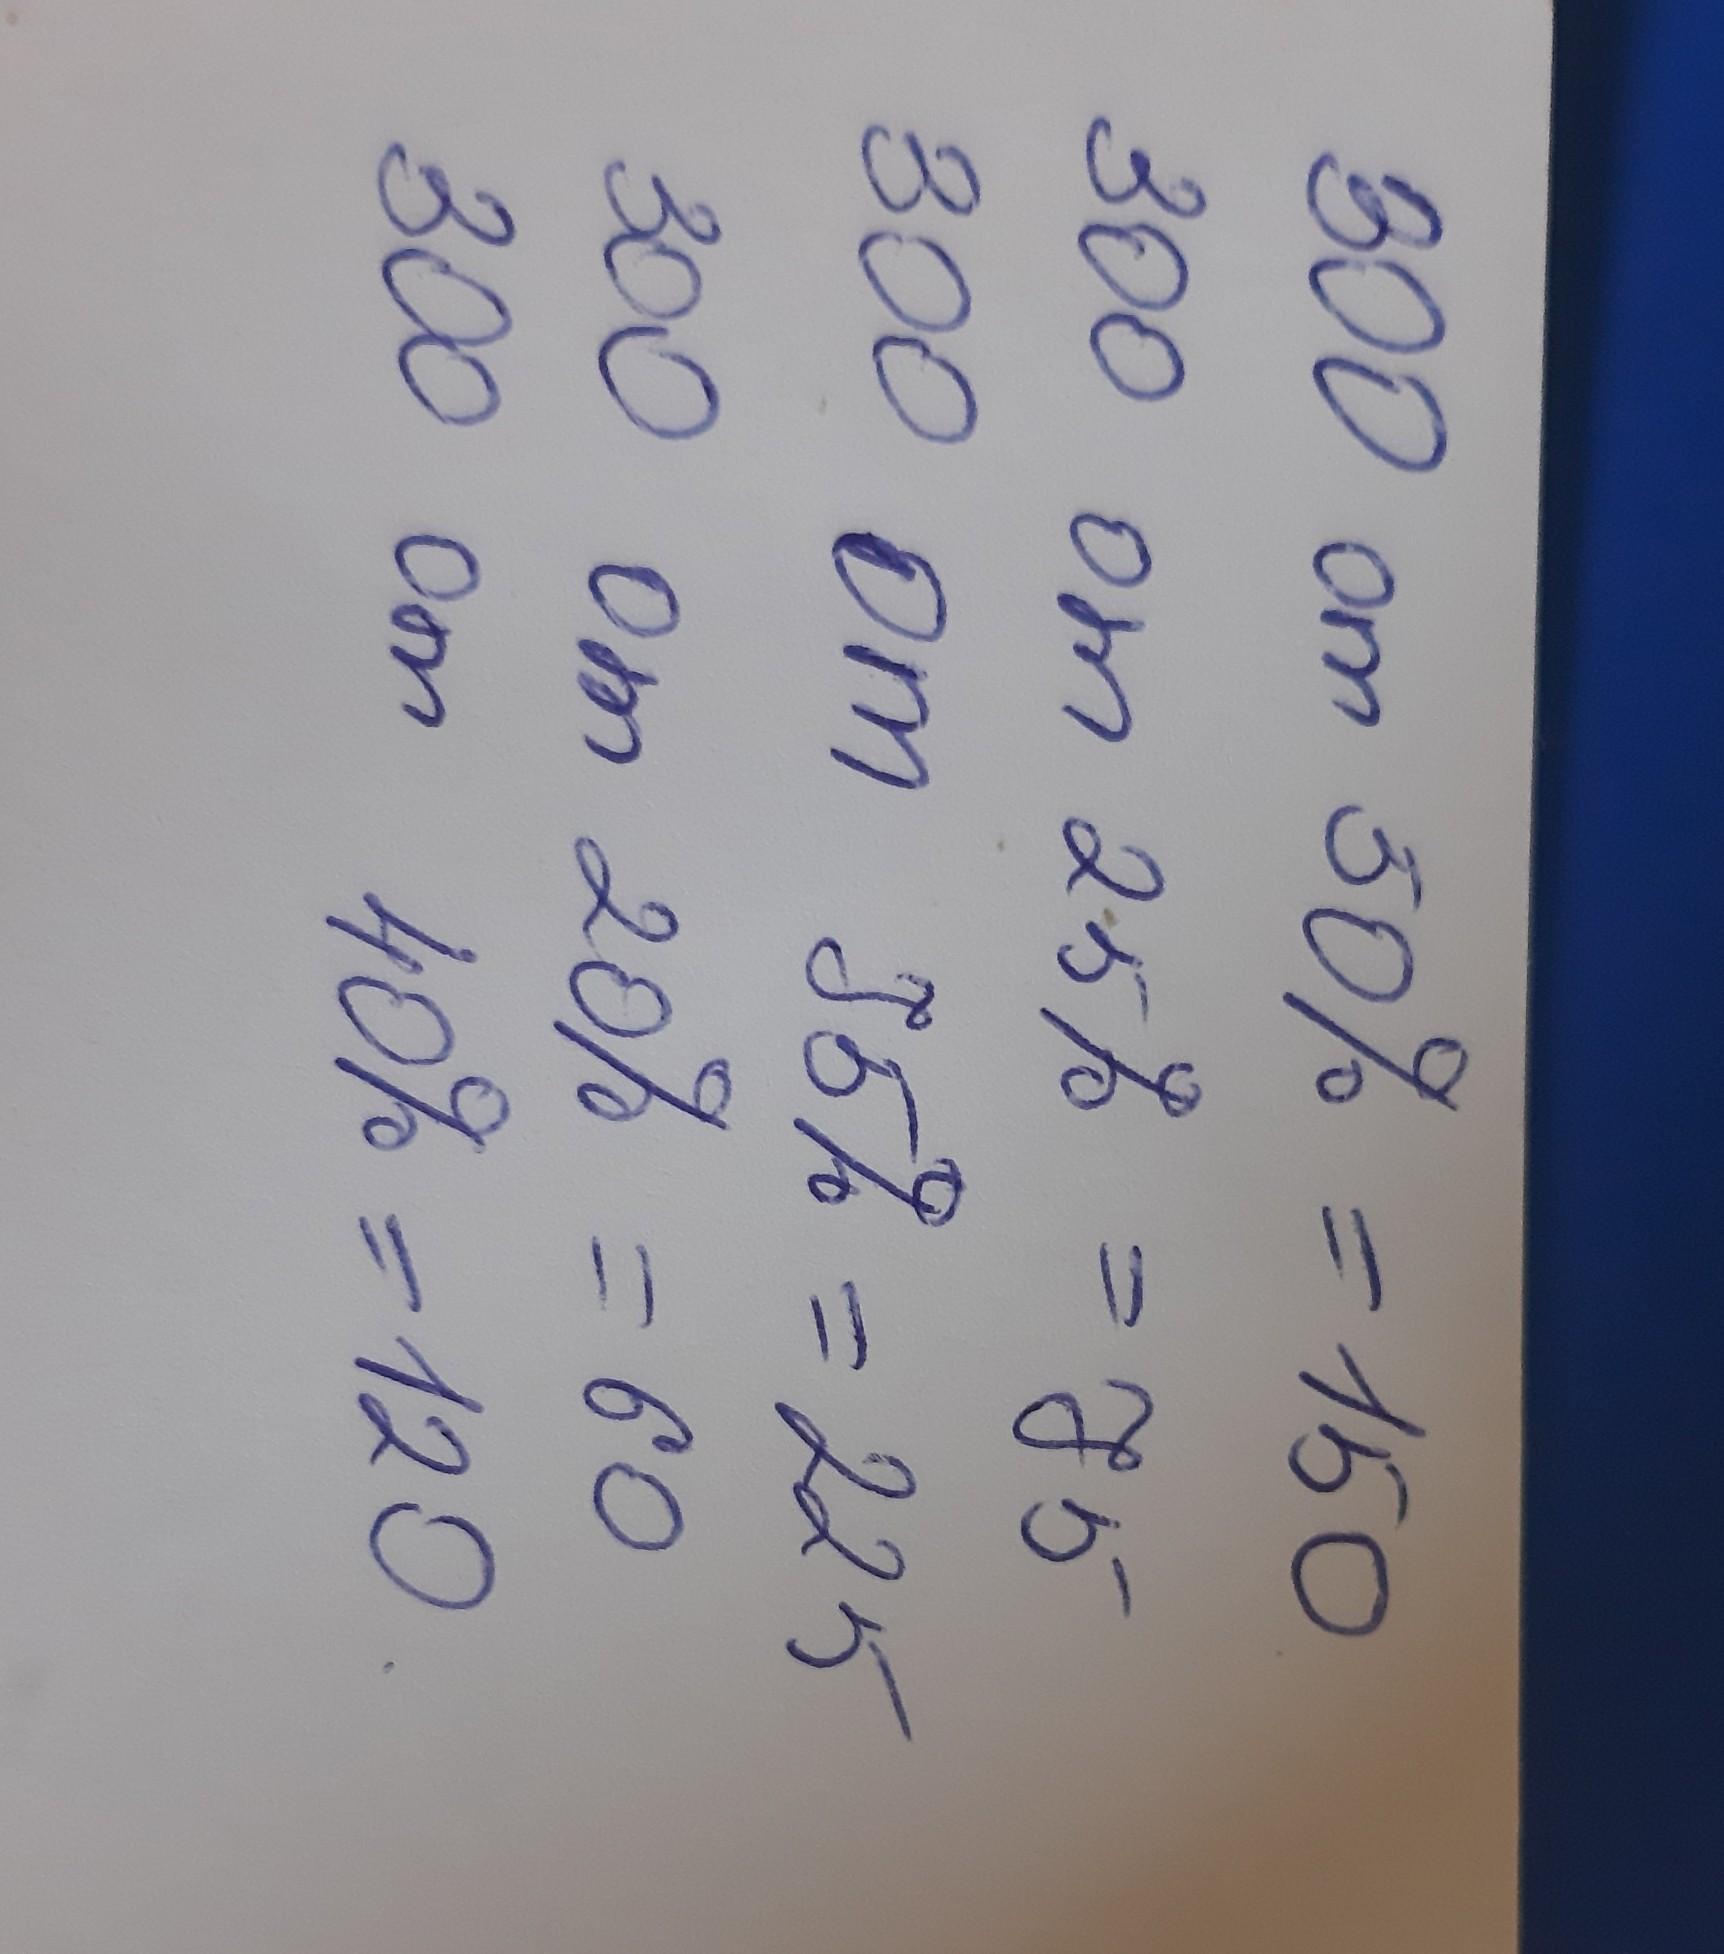 300 от 50% = 150
300 от 25% = 75
300 от 75% = 225
300 от 20% = 60
300 от 40% = 120